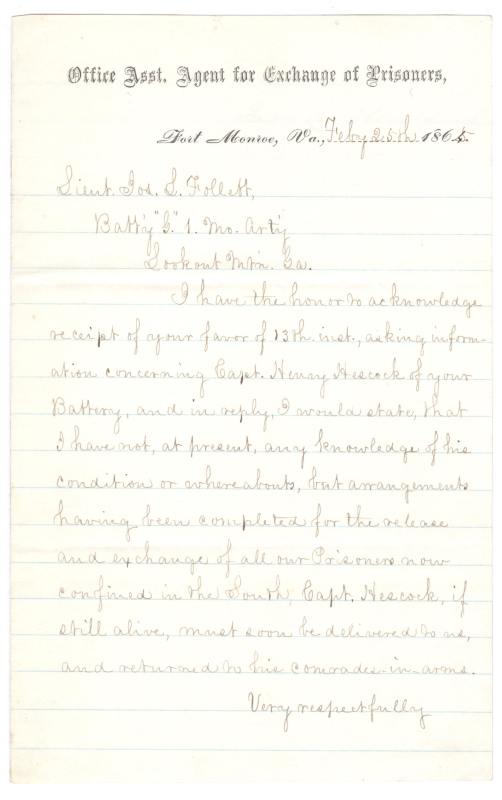 Office Asst. Agent for Exchange of Prisoners,
Fort Monroe, Va., Feby 25th 1865.
Lieut. Jos. L. Follett,
Batt'y "G." 1. Mo. Art'y
Lookout Mt'n. Ga.
I have the honor to acknowledge
receipt of your favor of 13th inst., asking inform-
ation concerning Capt. Henry Hescock of your
Battery, and in reply, I would state, that
I have not, at present, any knowledge of his
condition or whereabouts, but arrangements
having been completed for the release
and exchange of all our Prisoners now
confined in the South, Capt. Hescock, if
still alive, must soon be delivered to us,
and returned to his comrades-in-arms.
Very respectfully